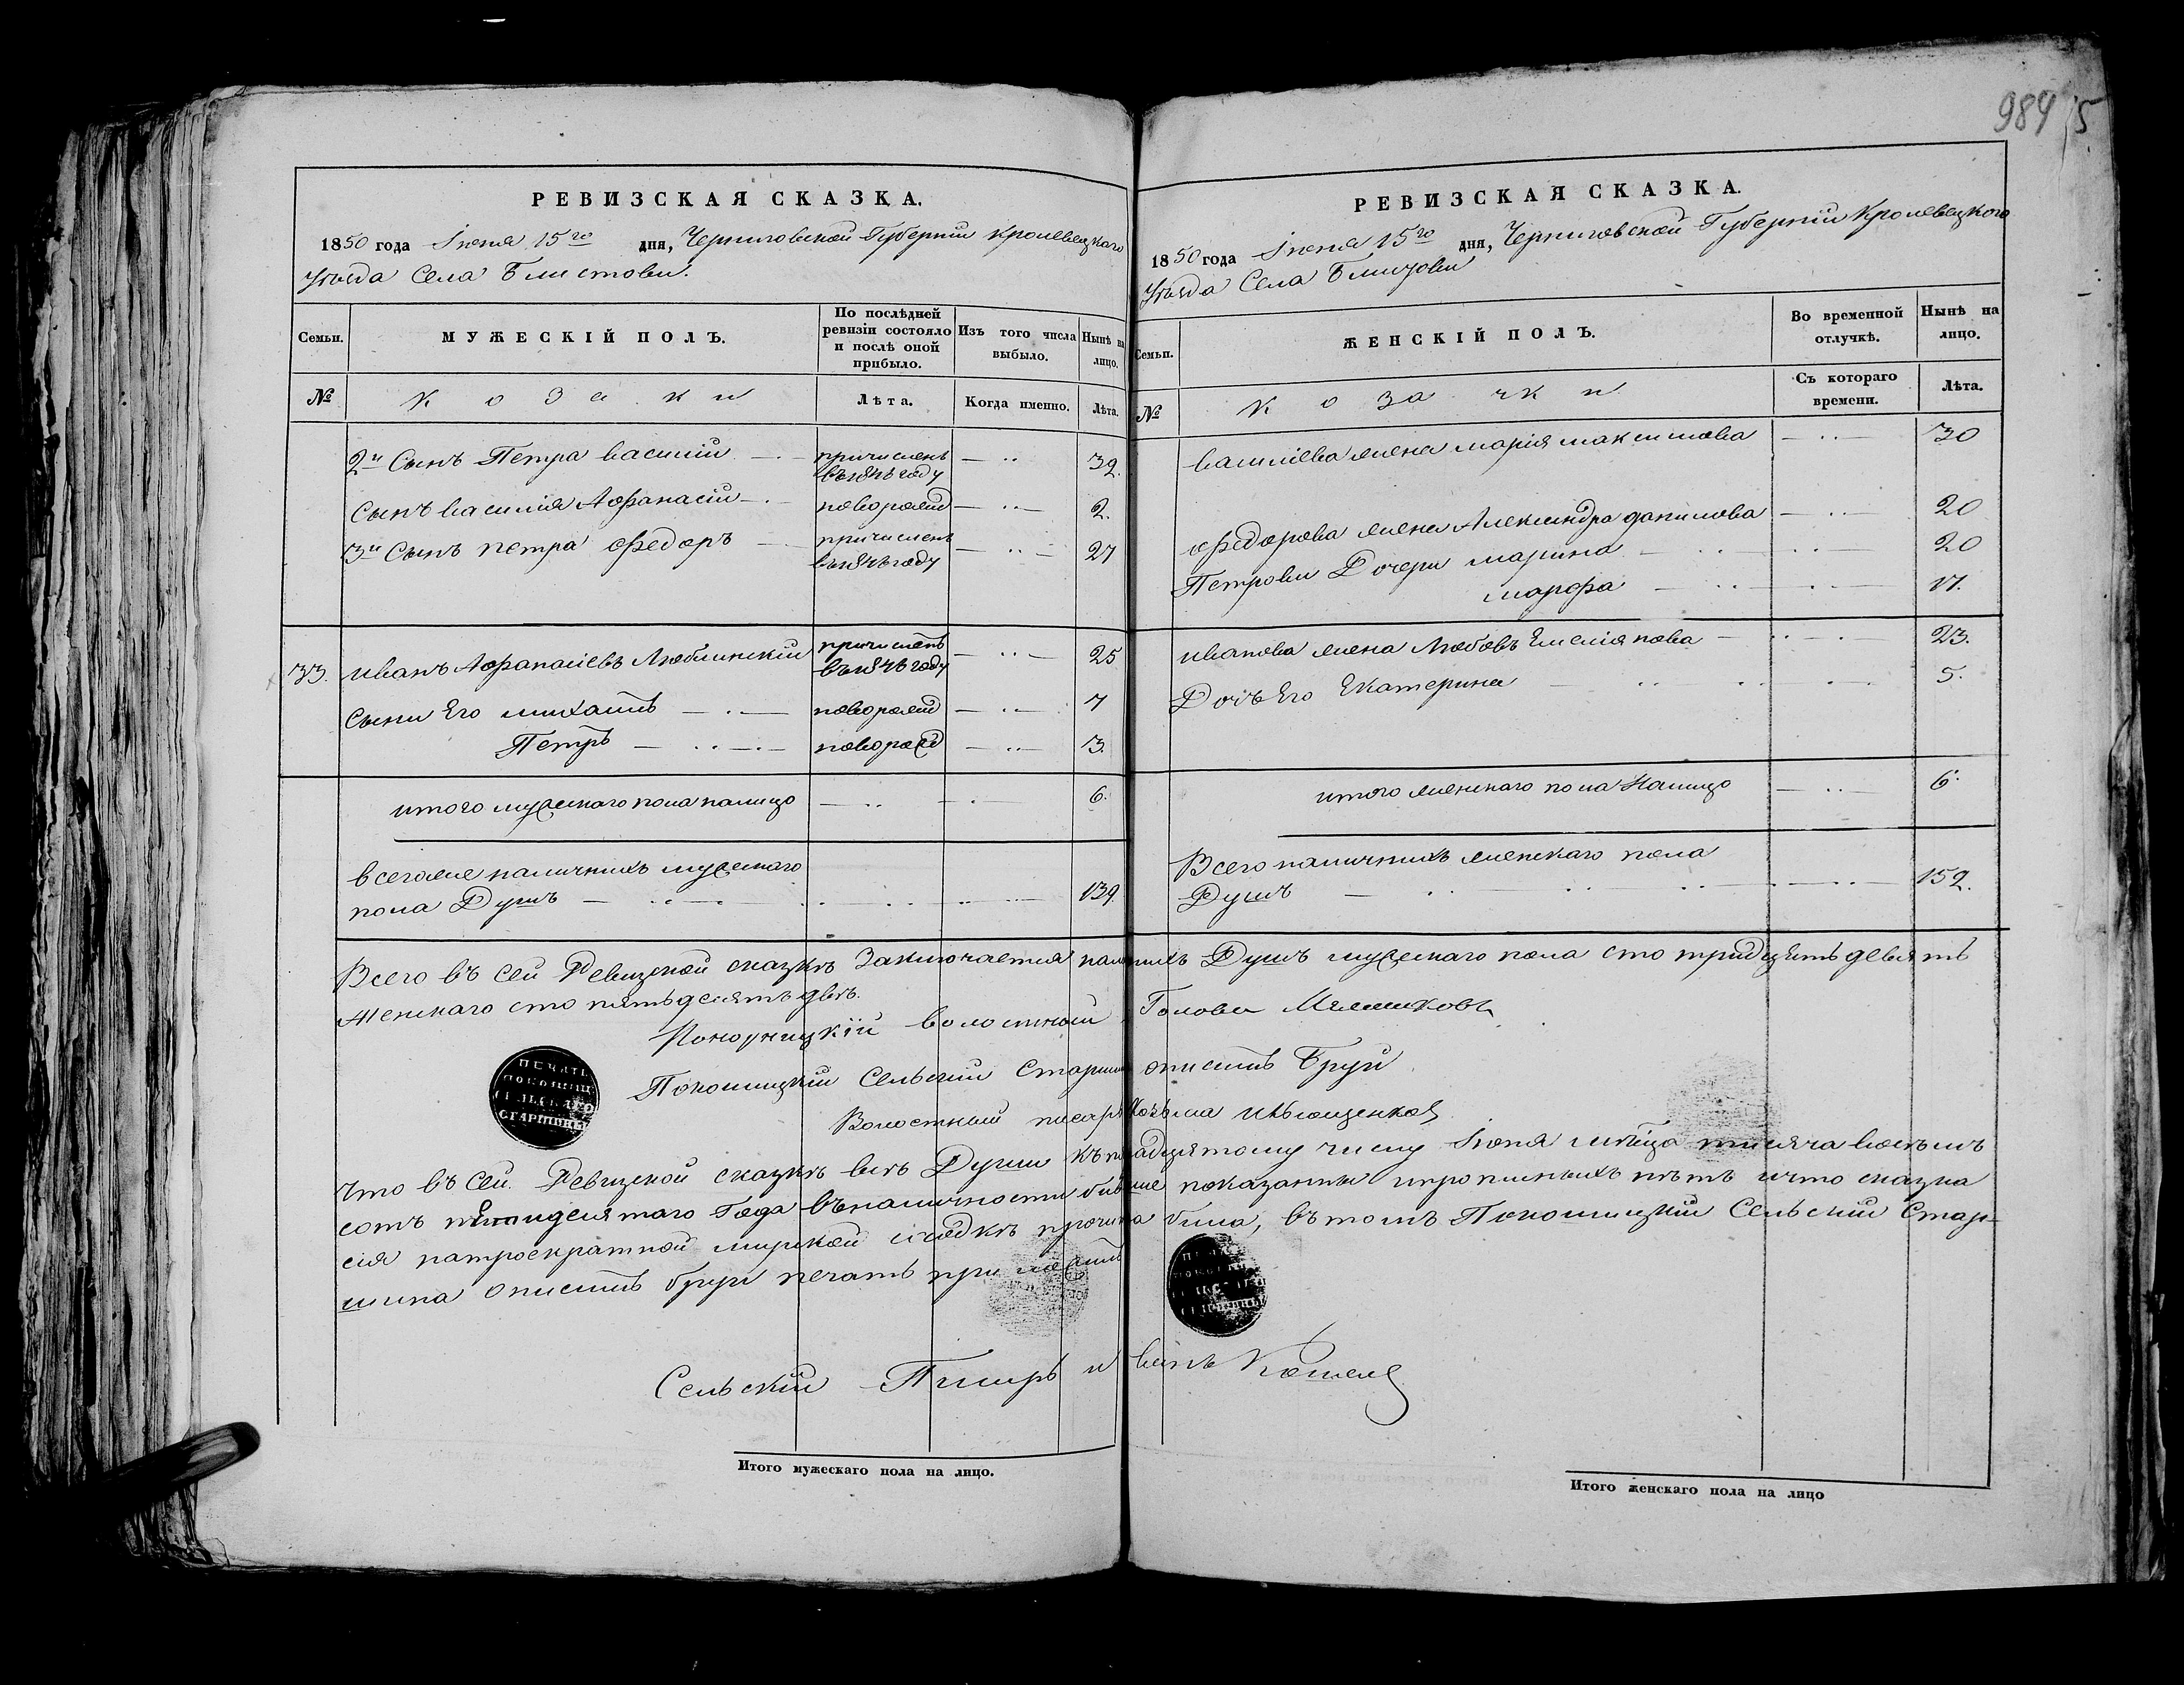 984 5
РЕВИЗСКАЯ СКАЗКА.
1850 года Іюня 15го дня, Черниговской Губерніи Кролевецкаго
Уѣзда Села Блистовы.
Семьи. МУЖЕСКІЙ ПОЛЪ. По послѣдней ревизіи состояло и послѣ оной прибыло. Изъ того числа выбыло. Нынѣ на лицо.
№ Козаки Лѣта. Когда именно. Лѣта.
2й Сынъ Петра василій причисленъ 32.
году
Сынъ василія Афанасій новорожд 2.
3й Сынъ петра федоръ причисленъ 27
году
33. иванъ Афанасіевъ Люблинскій причисленъ 25
году
Сыны Его михаилъ новорожд 7
Петръ новорожд 3.
итого мужескаго пола налицо 6.
всегоже наличныхъ мужескаго
пола Душъ 139.
РЕВИЗСКАЯ СКАЗКА.
1850 года Іюня 15го дня, Черниговской Губерніи Кролевецкого
Уѣзда Села
Семьи. ЖЕНСКІЙ ПОЛЪ. Во временной отлучкѣ. Нынѣ на лицо.
№ Козачки Съ котораго времени. Лѣта.
василіева жена марія максимова 30
федорова жена Александра данилова 20
Петровы Дочери марина 20
марфа 17.
иванова жена Любовъ Емеліянова 23.
Дочь Его Екатерина 5.
итого женскаго пола Налицо 6.
Всего наличныхъ женскаго пола
Душъ 152.
Всего въ сей Ревизской сказкѣ Заключается наличныхъ Душъ мужескаго пола сто тридцять девять
Женскаго сто пятьдесятъ двѣ.
волостный Голова
Покошицкій Сельскій Старшина Бруй
Волостный писарь
ПЕЧАТЬ ПОКОШИЦК СЕЛЬСКАГО СТАРШИНЫ
Что въ сей Ревизской сказкѣ всѣ Души къ числу Іюня мѣсяца тысяча восемъ
сотъ пятидесятаго Года въналичности бывшие показанны ипрописныхъ нѣтъ ичто сказка
сія натроекратной мирской сходкѣ прочитана была, въ томъ Покошицкій Сельскій Стар-
шина бруй печать приложилъ
Сельскій Писарь иванъ
Итого мужескаго пола на лицо.
Итого женскаго пола на лицо